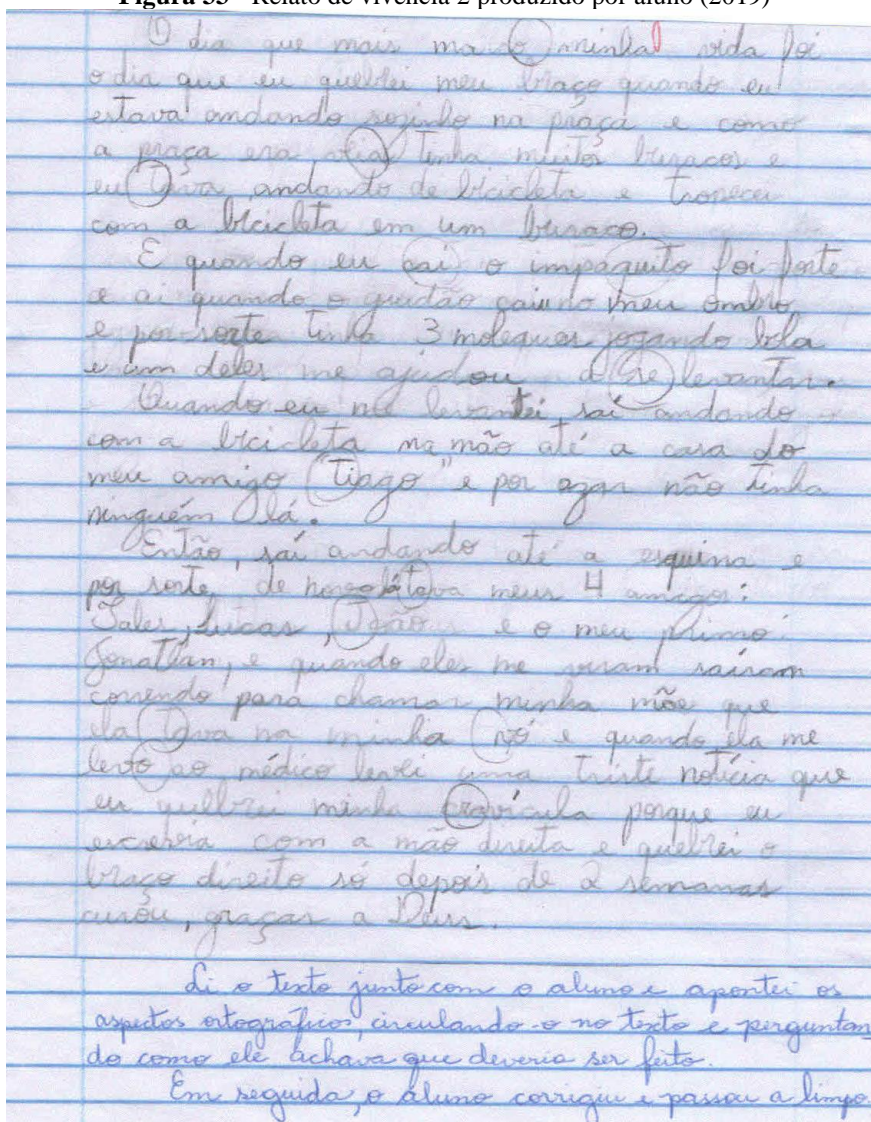 Figura 33 - Relato de vivência 2 produzido por aluno (2019)
O dia que mais ma do minha vida foi
o dia que eu quebrei meu braço quando eu
estava andando sozinho na praça e como
a praça era tinha muitos buracos e
eu tava andando de bicicleta e tropecei
com a bicicleta em um buraco.
E quando eu cai o impaquito foi forte
e ai quando o guidão caiu do meu ombro
e por sorte tinha 3 moleques jogando bola
e um deles me ajudou a se levantar.
Quando eu me levantei, saí andando
com a bicicleta na mão até a casa do
meu amigo "Tiago" e por azar não tinha
ninguém lá.
Então, saí andando até a esquina e
por sorte, de lá tava meus 4 amigos:
Tales, Lucas, João e o meu primo
Jonathan, e quando eles me viram saíram
correndo para chamar minha mãe que
ela tava na minha vó e quando ela me
levo ao médico levei uma triste notícia que
eu quebrei minha cravícula porque eu
escrevia com a mão direita e quebrei o
braço direito só depois de 2 semanas
curou, graças a Deus.
Li o texto junto com o aluno e apontei os
aspectos ortográficos, circulando-o no texto e perguntan
do como ele achava que deveria ser feito.
Em seguida, o aluno corrigiu e passou a limpo.